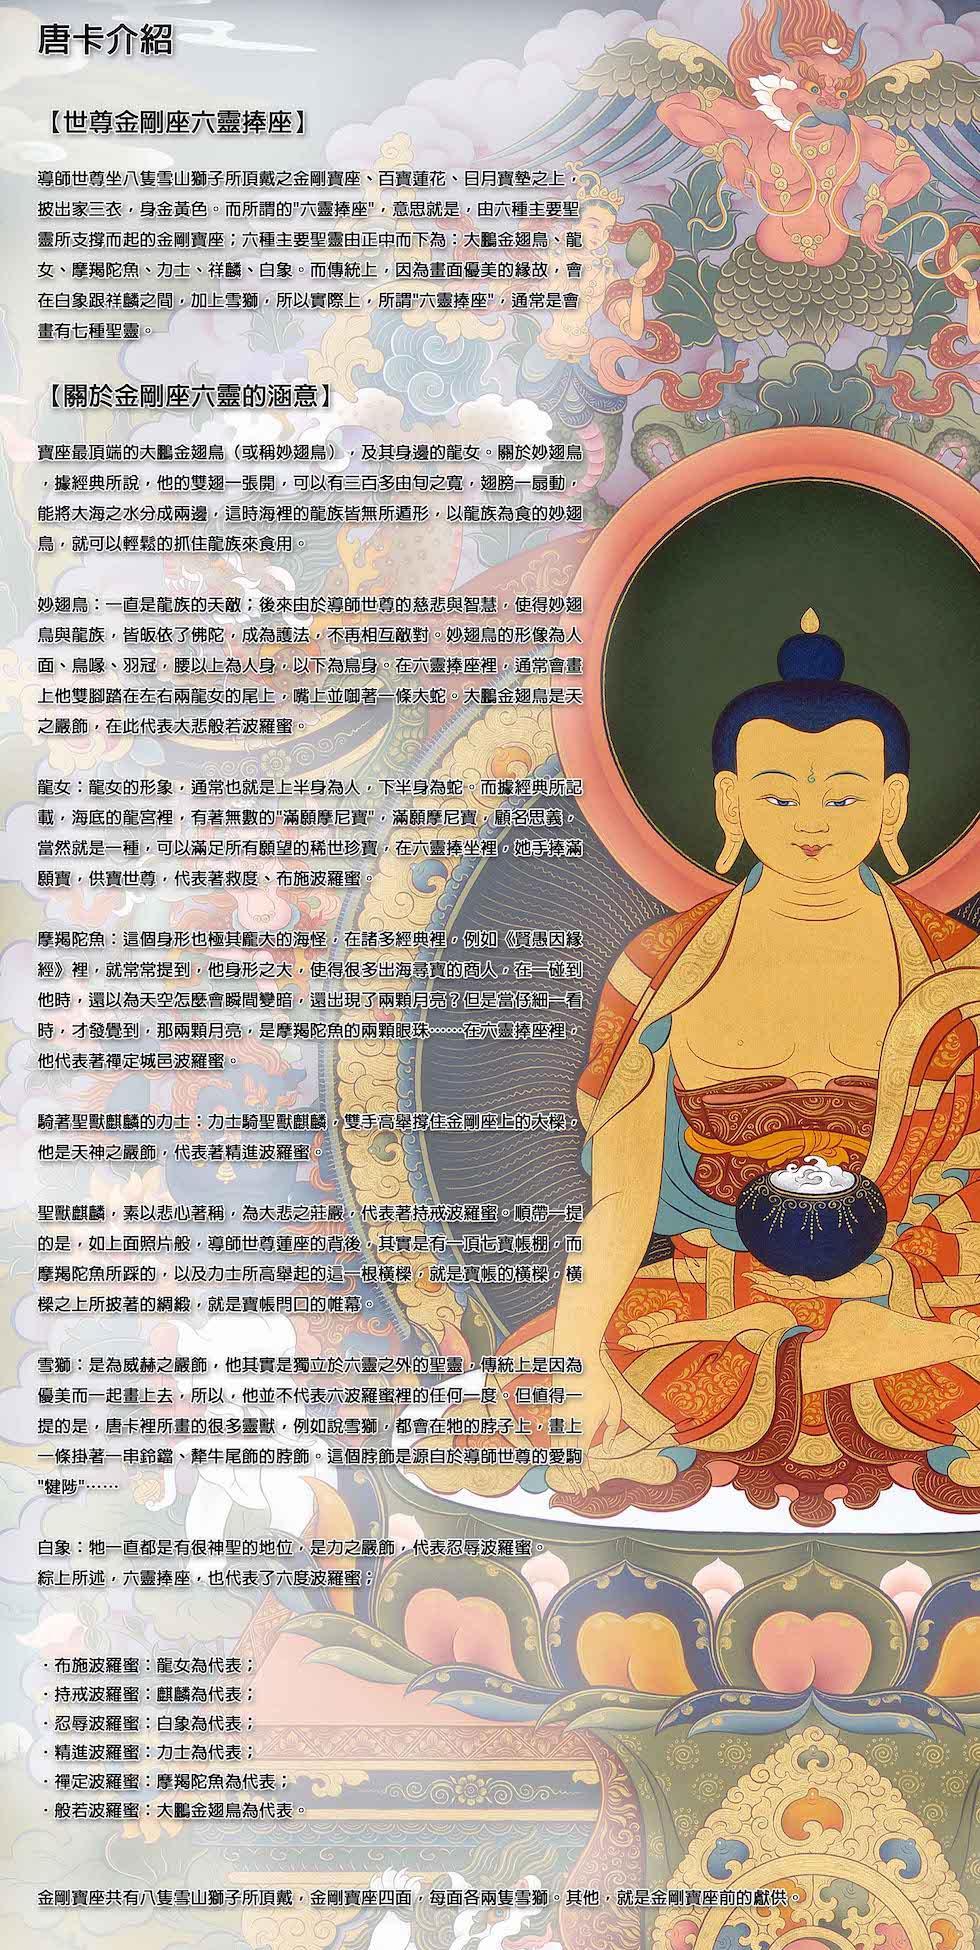 唐卡介紹
【世尊金剛座六靈捧座】
導師世尊坐八隻雪山獅子所頂戴之金剛寶座、百寶蓮花、日月寶墊之上，
披出家三衣，身金黃色。而所謂的"六靈捧座"，意思就是，由六種主要聖
靈所支撐而起的金剛寶座；六種主要聖靈由正中而下為：大鵬金翅鳥、龍
女、摩羯陀魚、力士、祥麟、白象。而傳統上，因為畫面優美的緣故，會
在白象跟祥麟之間，加上雪獅，所以實際上，所謂"六靈捧座"，通常是會
畫有七種聖靈。
【關於金剛座六靈的涵意】
寶座最頂端的大鵬金翅鳥（或稱妙翅鳥），及其身邊的龍女。關於妙翅鳥
，據經典所說，他的雙翅一張開，可以有三百多由旬之寬，翅膀一扇動，
能將大海之水分成兩邊，這時海裡的龍族皆無所遁形，以龍族為食的妙翅
鳥，就可以輕鬆的抓住龍族來食用。
妙翅鳥：一直是龍族的天敵；後來由於導師世尊的慈悲與智慧，使得妙翅
鳥與龍族，皆皈依了佛陀，成為護法，不再相互敵對。妙翅鳥的形像為人
面、鳥喙、羽冠，腰以上為人身，以下為鳥身。在六靈捧座裡，通常會畫
上他雙腳踏在左右兩龍女的尾上，嘴上並啣著一條大蛇。大鵬金翅鳥是天
之嚴飾，在此代表大悲般若波羅蜜。
龍女：龍女的形象，通常也就是上半身為人，下半身為蛇。而據經典所記
載，海底的龍宮裡，有著無數的"滿願摩尼寶"，滿願摩尼寶，顧名思義，
當然就是一種，可以滿足所有願望的稀世珍寶，在六靈捧坐裡，她手捧滿
願寶，供寶世尊，代表著救度、布施波羅蜜。
摩羯陀魚：這個身形也極其龐大的海怪，在諸多經典裡，例如《賢愚因緣
經》裡，就常常提到，他身形之大，使得很多出海尋寶的商人，在一碰到
他時，還以為天空怎麼會瞬間變暗，還出現了兩顆月亮？但是當仔細一看
時，才發覺到，那兩顆月亮，是摩羯陀魚的兩顆眼珠……在六靈捧座裡，
他代表著禪定城邑波羅蜜。
騎著聖獸麒麟的力士：力士騎聖獸麒麟，雙手高舉撐住金剛座上的大樑，
他是天神之嚴飾，代表著精進波羅蜜。
聖獸麒麟，素以悲心著稱，為大悲之莊嚴，代表著持戒波羅蜜。順帶一提
的是，如上面照片般，導師世尊蓮座的背後，其實是有一頂七寶帳棚，而
摩羯陀魚所踩的，以及力士所高舉起的這一根橫樑，就是寶帳的橫樑，橫
樑之上所披著的綢緞，就是寶帳門口的帷幕。
雪獅：是為威赫之嚴飾，他其實是獨立於六靈之外的聖靈，傳統上是因為
優美而一起畫上去，所以，他並不代表六波羅蜜裡的任何一度。但值得一
提的是，唐卡裡所畫的很多靈獸，例如說雪獅，都會在牠的脖子上，畫上
一條掛著一串鈴鐺、犛牛尾飾的脖飾。這個脖飾是源自於導師世尊的愛駒
"犍陟"……
白象：牠一直都是有很神聖的地位，是力之嚴飾，代表忍辱波羅蜜。
綜上所述，六靈捧座，也代表了六度波羅蜜；
．布施波羅蜜：龍女為代表；
．持戒波羅蜜：麒麟為代表；
．忍辱波羅蜜：白象為代表；
．精進波羅蜜：力士為代表；
．禪定波羅蜜：摩羯陀魚為代表；
．般若波羅蜜：大鵬金翅鳥為代表。
金剛寶座共有八隻雪山獅子所頂戴，金剛寶座四面，每面各兩隻雪獅。其他，就是金剛寶座前的獻供。